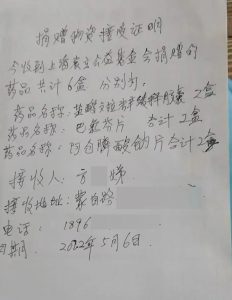 捐赠物资接收证明
今收到上海复星公益基金会捐赠的
药品共计6盒 分别为:
药品名称: 盐酸文拉法辛缓释胶囊 2盒
药品名称: 巴氯芬片 合计2盒
药品名称: 阿仑膦酸钠片合计2盒
接收人: 方 娣
接收地址: 蒙自路
电话: 1896
日期 2022年5月6日